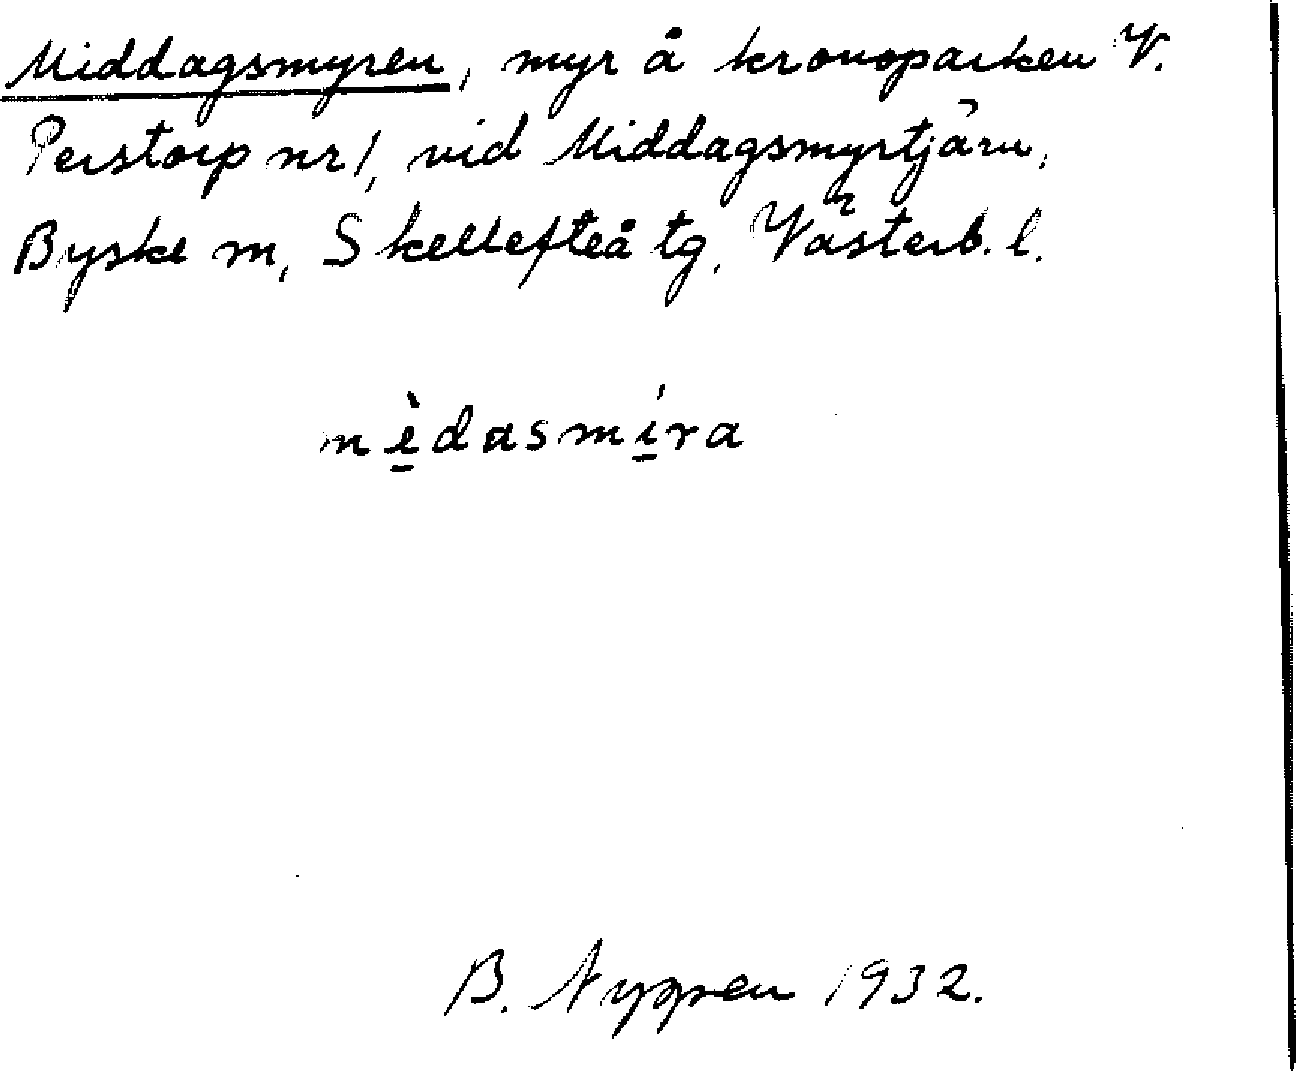 Middagsmyren, myr å kronoparken V.
Perstorp nr 1, vid Middagsmyrtjärn,
Byske sn, Skellefteå tg, Västerb. l.
mèdasmíra
B. Nygren 1932.